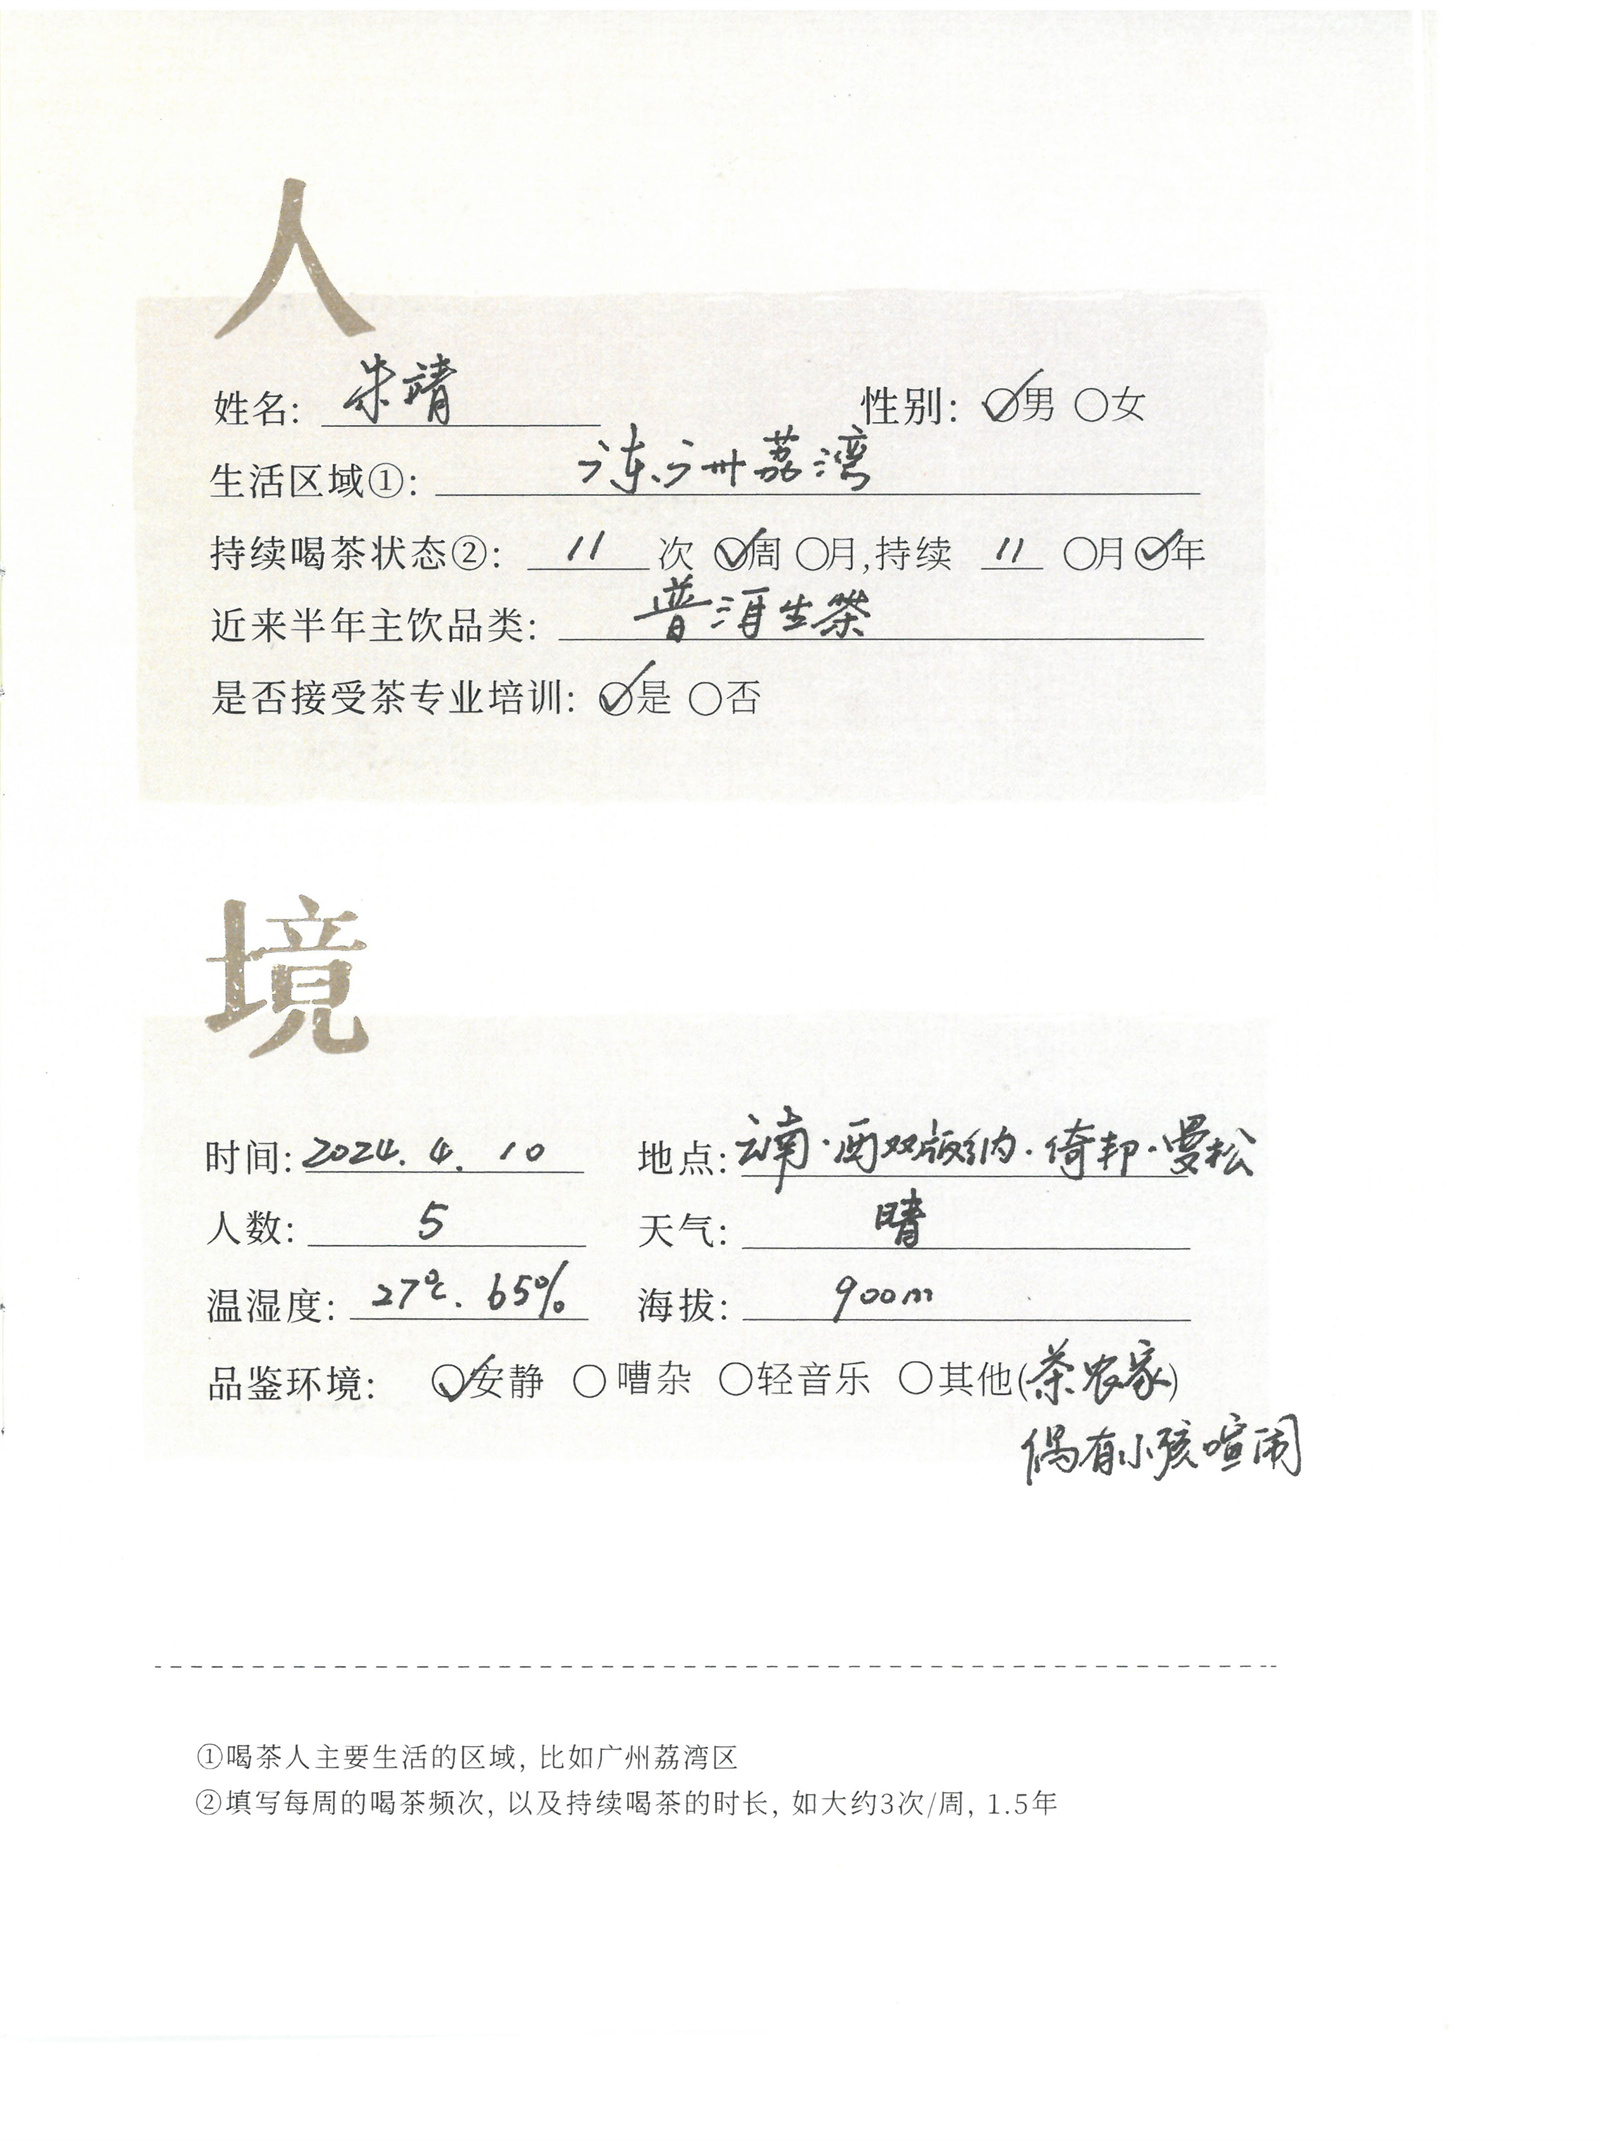 人
姓名: 朱靖 性别: ☑男 ○女
生活区域①: 广东广州荔湾
持续喝茶状态②: 11 次 ☑周 ○月,持续 11 ○月 ☑年
近来半年主饮品类: 普洱生茶
是否接受茶专业培训: ☑是 ○否
境
时间: 2024.4.10 地点: 云南·西双版纳·倚邦·曼松
人数: 5 天气: 晴
温湿度: 27℃. 65% 海拔: 900m
品鉴环境: ☑安静 ○嘈杂 ○轻音乐 ○其他(茶农家)
偶有小孩喧闹
①喝茶人主要生活的区域, 比如广州荔湾区
②填写每周的喝茶频次, 以及持续喝茶的时长, 如大约3次/周, 1.5年